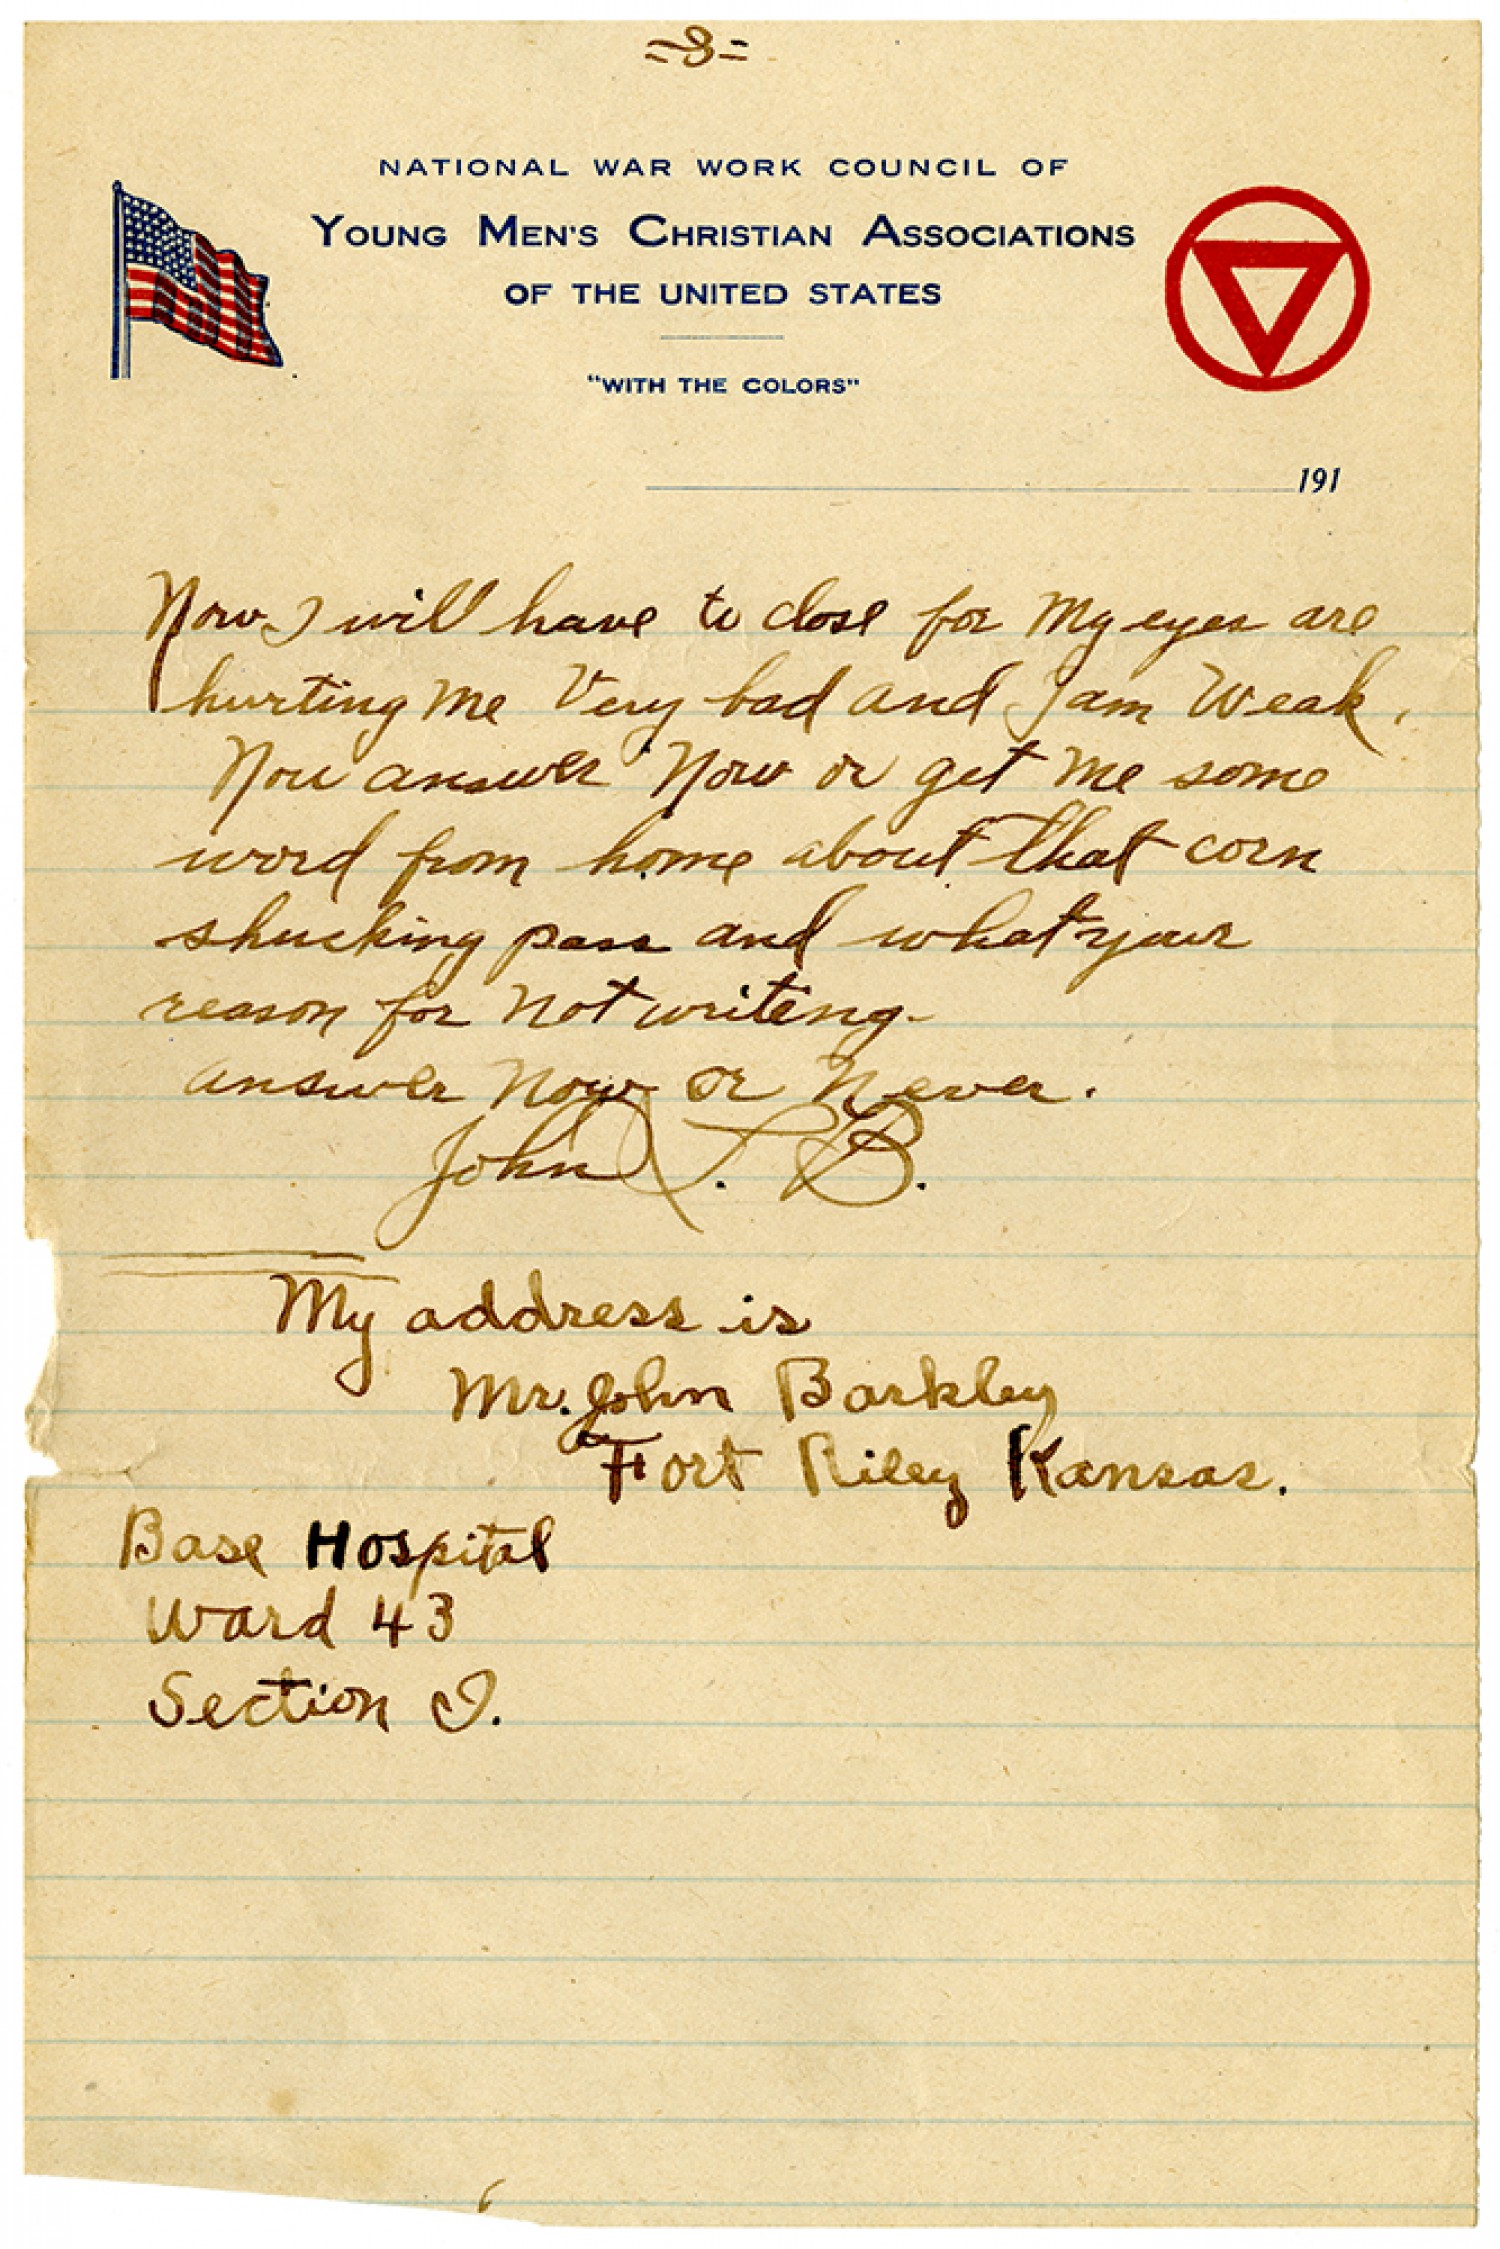 =3=
NATIONAL WAR WORK COUNCIL OF
YOUNG MEN'S CHRISTIAN ASSOCIATIONS
OF THE UNITED STATES
"WITH THE COLORS"
191
Now I will have to close for My eyes are
hurting Me Very bad and I am Weak.
You answer Now or get Me some
word from home about that corn
shucking pass and what your
reason for Not writing.
answer Now or Never.
John L. B.
My address is
Mr. John Barkley
Fort Riley Kansas.
Base Hospital
Ward 43
Section I.